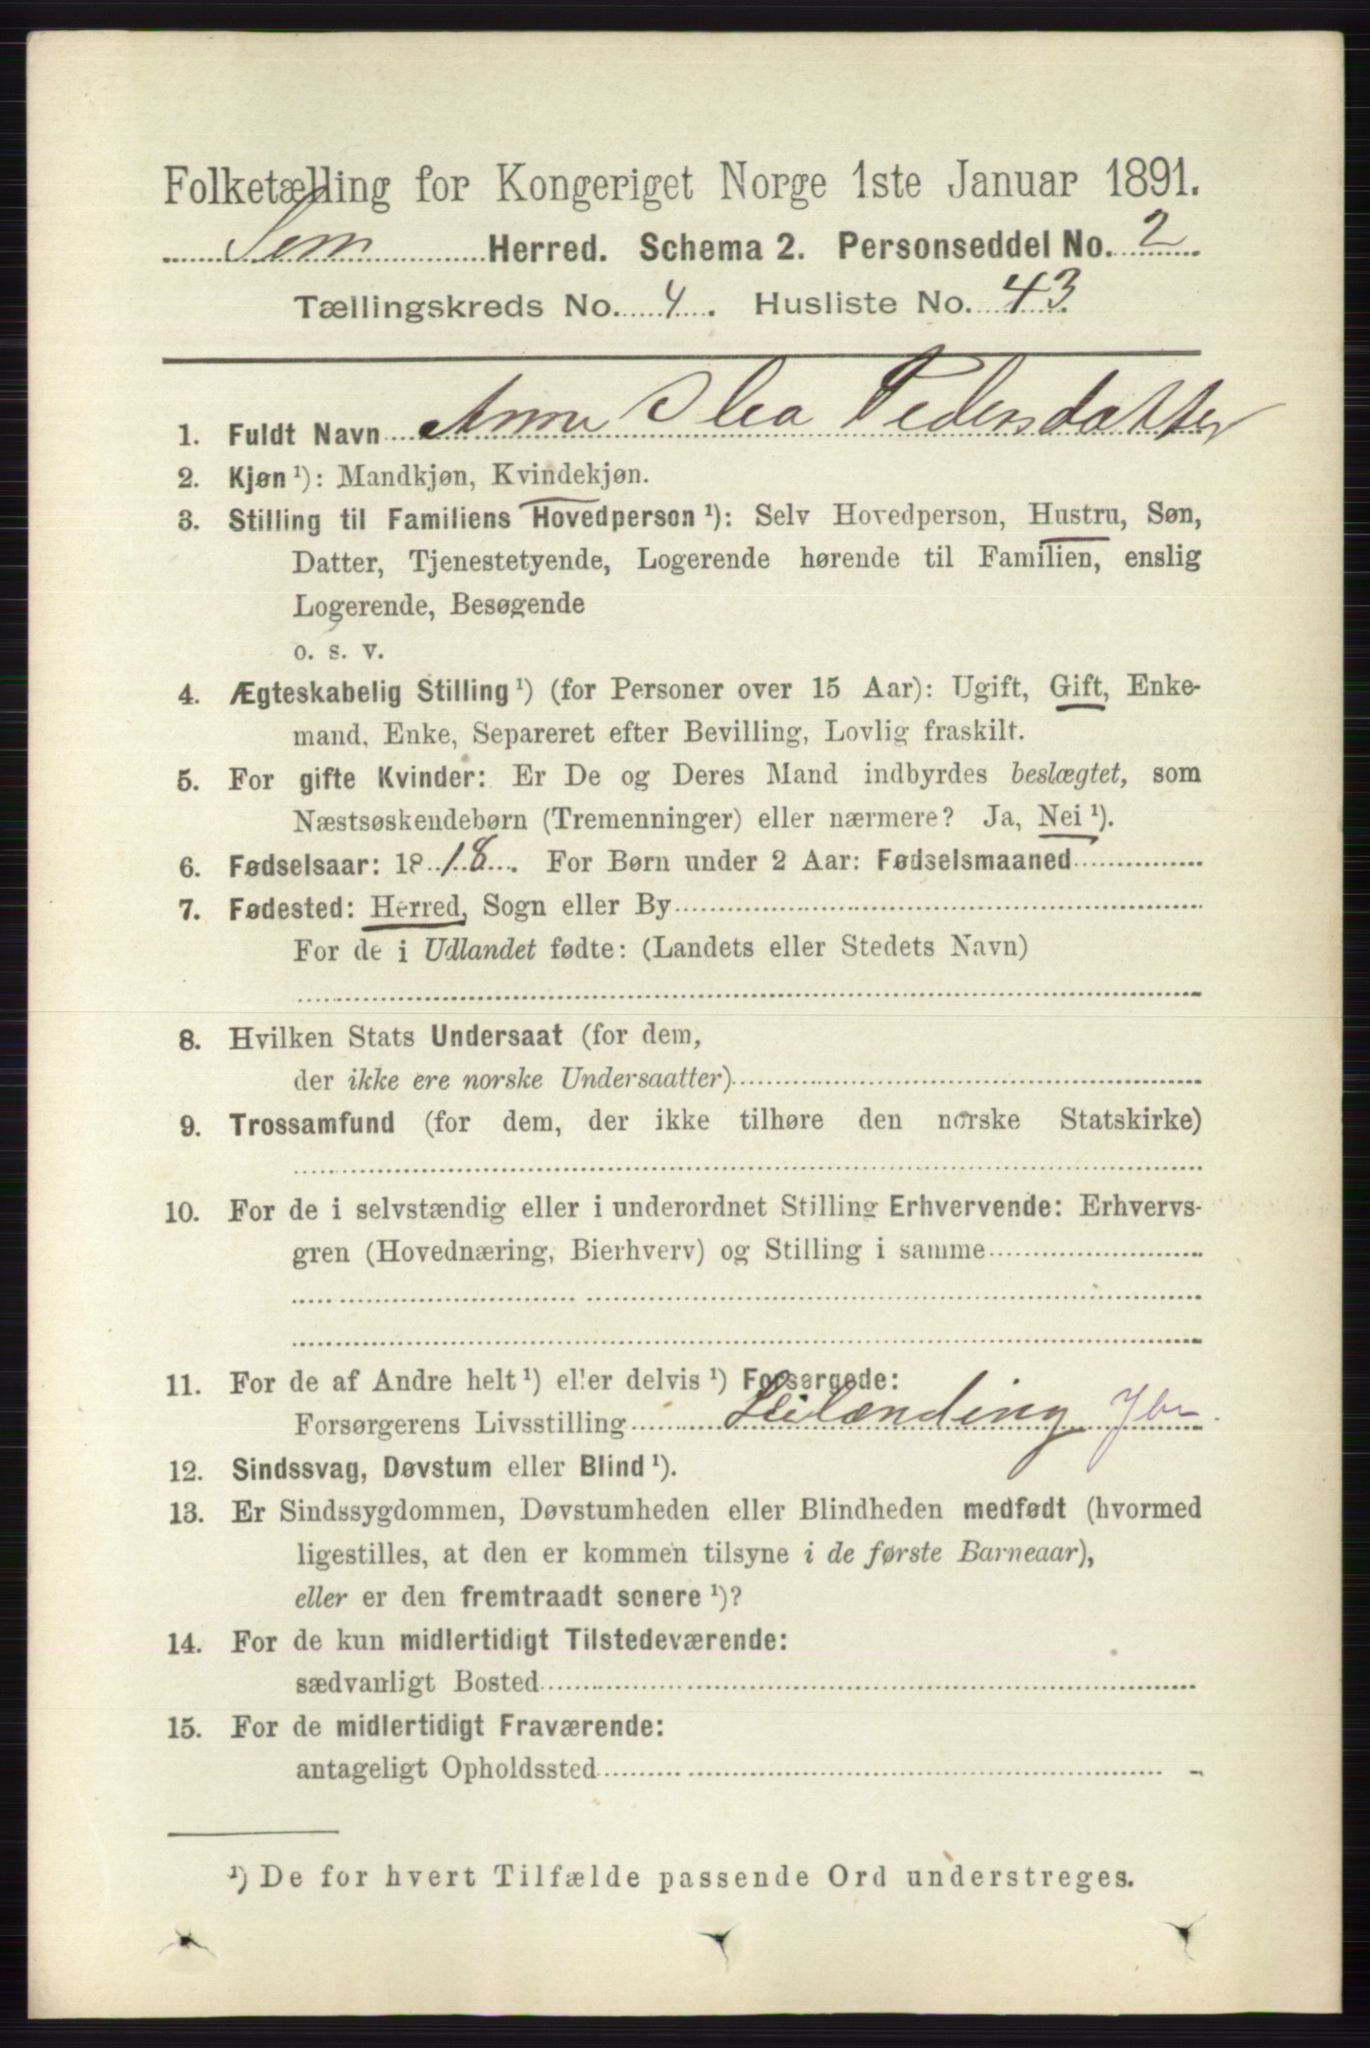 Folketælling for Kongeriget Norge 1ste Januar 1891.
Sem Herred. Schema 2. Personseddel No. 2
Tællingskreds No. 4. Husliste No. 43
1. Fuldt Navn Anne Olea Pedersdatter
2. Kjøn ¹): Mandkjøn, Kvindekjøn.
3. Stilling til Familiens Hovedperson ¹): Selv Hovedperson, Hustru, Søn,
Datter, Tjenestetyende, Logerende hørende til Familien, enslig
Logerende, Besøgende
o. s. v.
4. Ægteskabelig Stilling ¹) (for Personer over 15 Aar): Ugift, Gift, Enke-
mand, Enke, Separeret efter Bevilling, Lovlig fraskilt.
5. For gifte Kvinder: Er De og Deres Mand indbyrdes beslægtet, som
Næstsøskendebørn (Tremenninger) eller nærmere? Ja, Nei ¹).
6. Fødselsaar: 1818. For Børn under 2 Aar: Fødselsmaaned
7. Fødested: Herred, Sogn eller By
For de i Udlandet fødte: (Landets eller Stedets Navn)
8. Hvilken Stats Undersaat (for dem,
der ikke ere norske Undersaatter)
9. Trossamfund (for dem, der ikke tilhøre den norske Statskirke)
10. For de i selvstændig eller i underordnet Stilling Erhvervende: Erhvervs-
gren (Hovednæring, Bierhverv) og Stilling i samme
11. For de af Andre helt ¹) eller delvis ¹) Forsørgede:
Forsørgerens Livsstilling Leilænding
12. Sindssvag, Døvstum eller Blind ¹).
13. Er Sindssygdommen, Døvstumheden eller Blindheden medfødt (hvormed
ligestilles, at den er kommen tilsyne i de første Barneaar),
eller er den fremtraadt senere ¹)?
14. For de kun midlertidigt Tilstedeværende:
sædvanligt Bosted
15. For de midlertidigt Fraværende:
antageligt Opholdssted
¹) De for hvert Tilfælde passende Ord understreges.